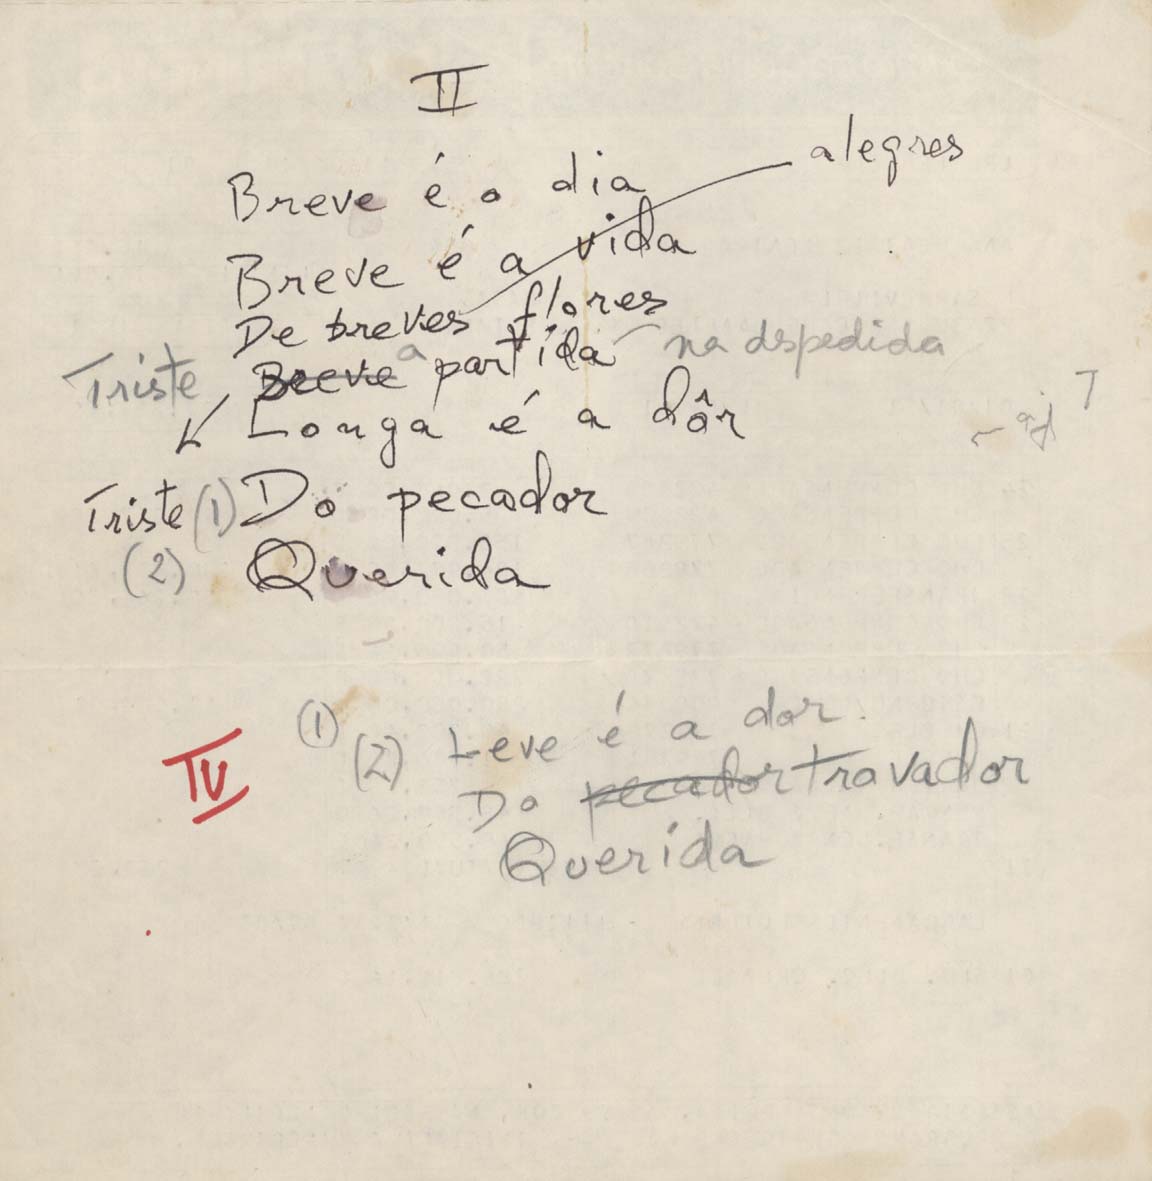 II
Breve é o dia
alegres
Breve é a vida
De breves flores
Triste Breve a partida na dspedida
Longa é a dôr
Triste (1) Do pecador
(2) Querida
IV
(1) (2) Leve é a dor.
Do pecador travador
Querida